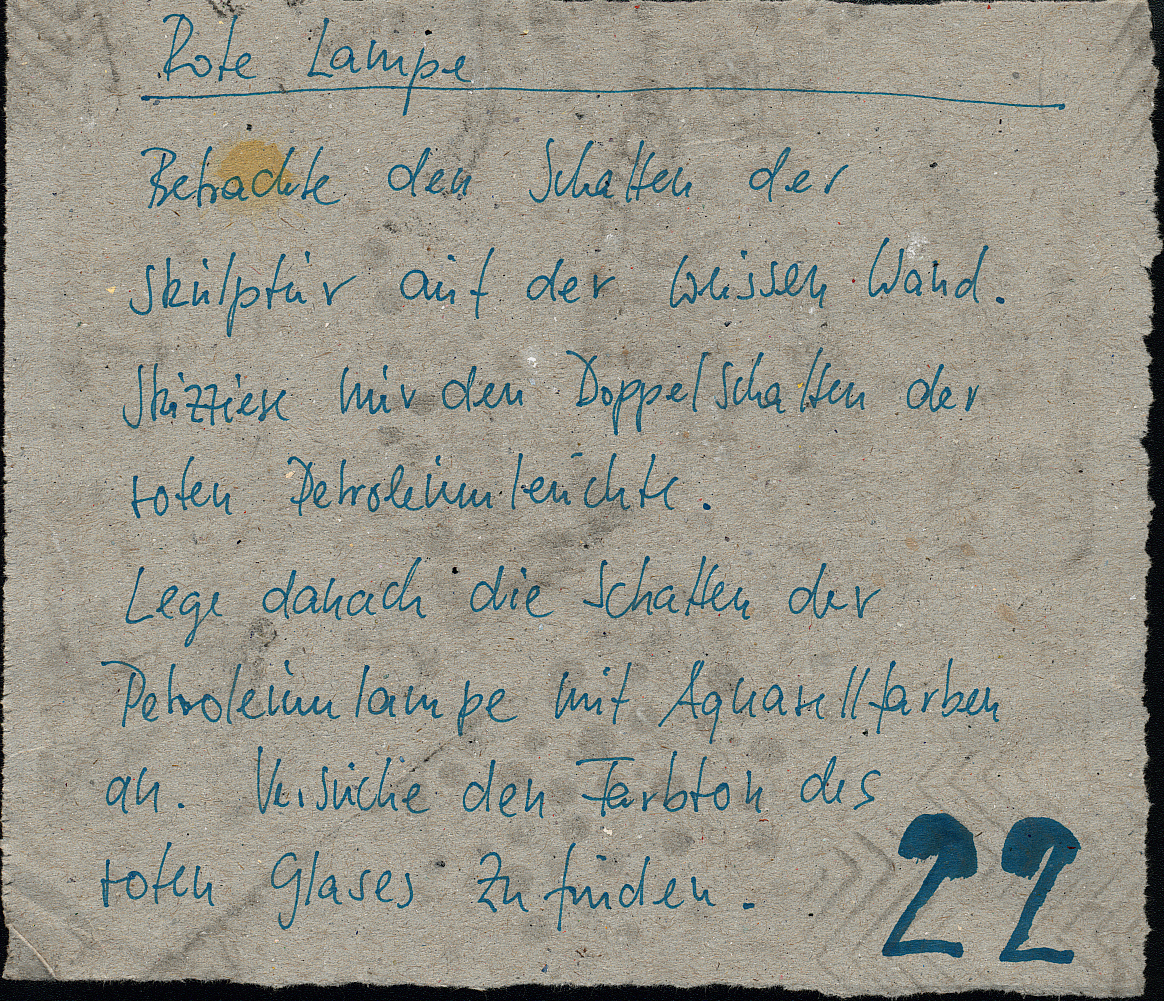 Rote Lampe
Betrachte den Schatten der
Skulptur auf der weissen Wand.
Skizziere nur den Doppelschatten der
roten Petroleumleuchte.
Lege danach die Schatten der
Petroleumlampe mit Aquarellfarben
an. Versuche den Farbton des
roten Glases zu finden.
22